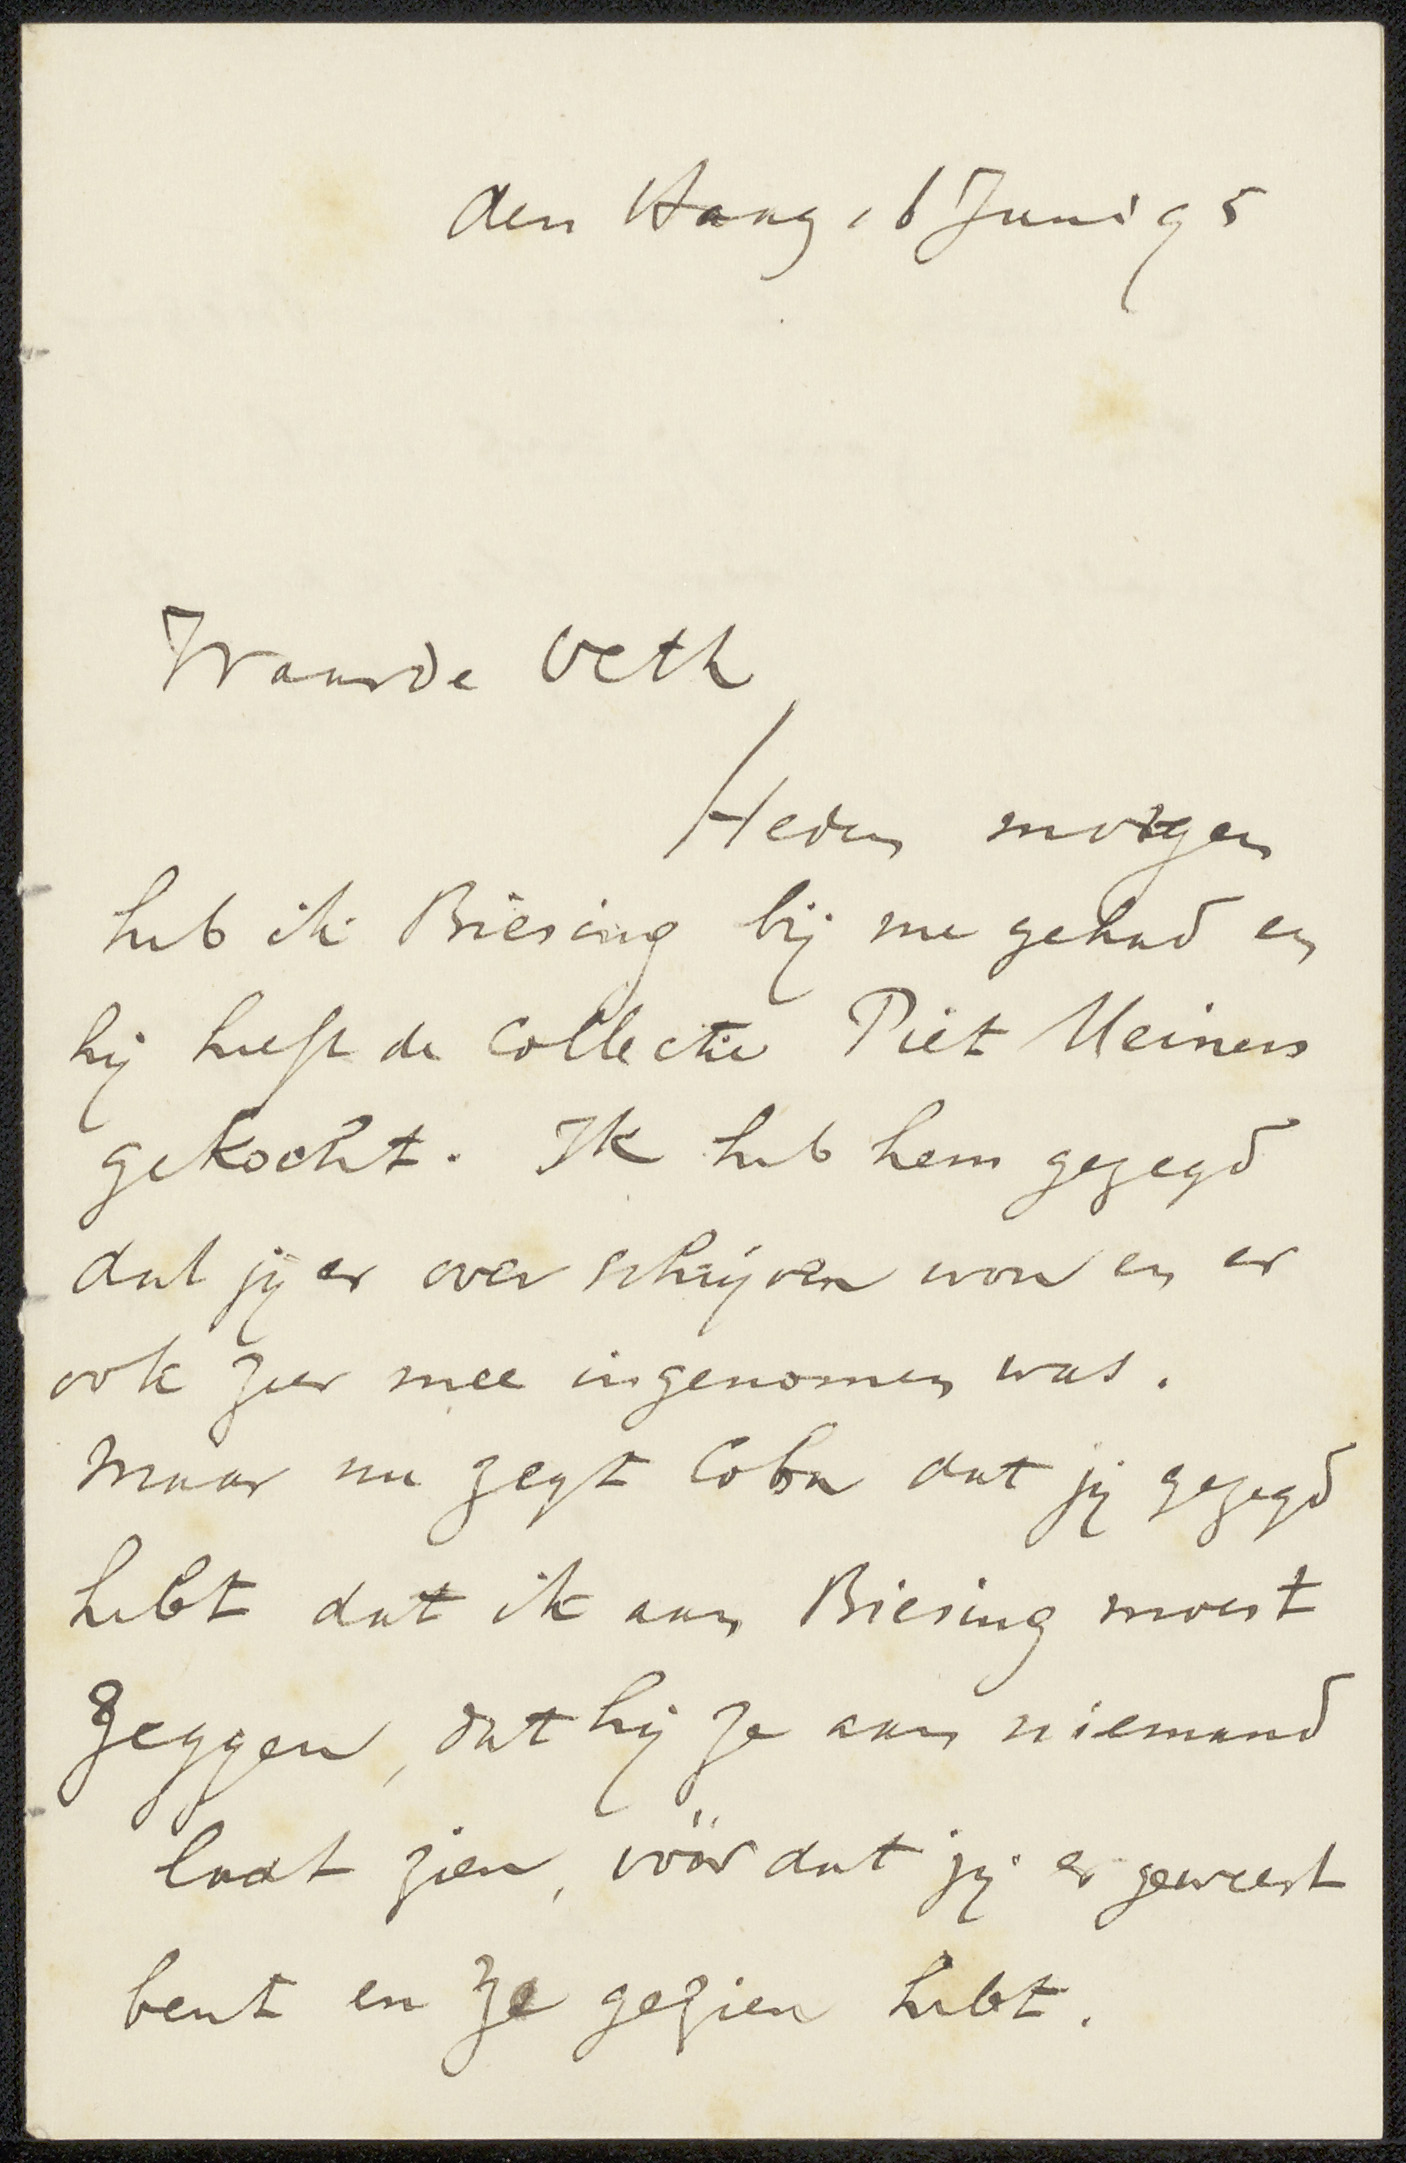 den Haag 16 Juni 95
Waarde Veth
Heden morgen
heb ik Biesing bij me gehad en
hij heeft de Collectie Piet Meiners
gekocht. Ik heb hem gezegd
dat jij er over schrijven wou en er
ook zeer mee ingenomen was.
maar nu zegt Coba dat jij gezegd
hebt dat ik aan Biesing moest
zeggen, dat hij ze aan niemand
laat zien, vóór dat jij er geweest
bent en ze gezien hebt.